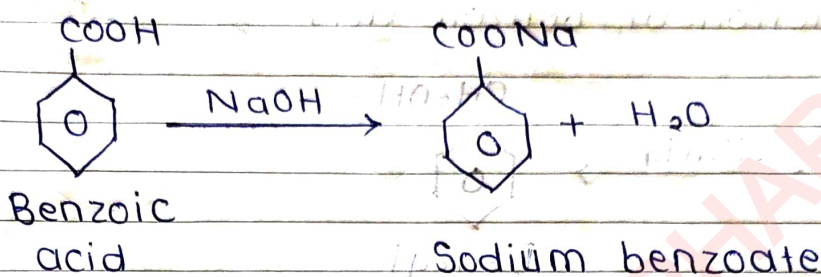 COOH COONa
NaOH
O O + H₂O
Benzoic
acid Sodium benzoate